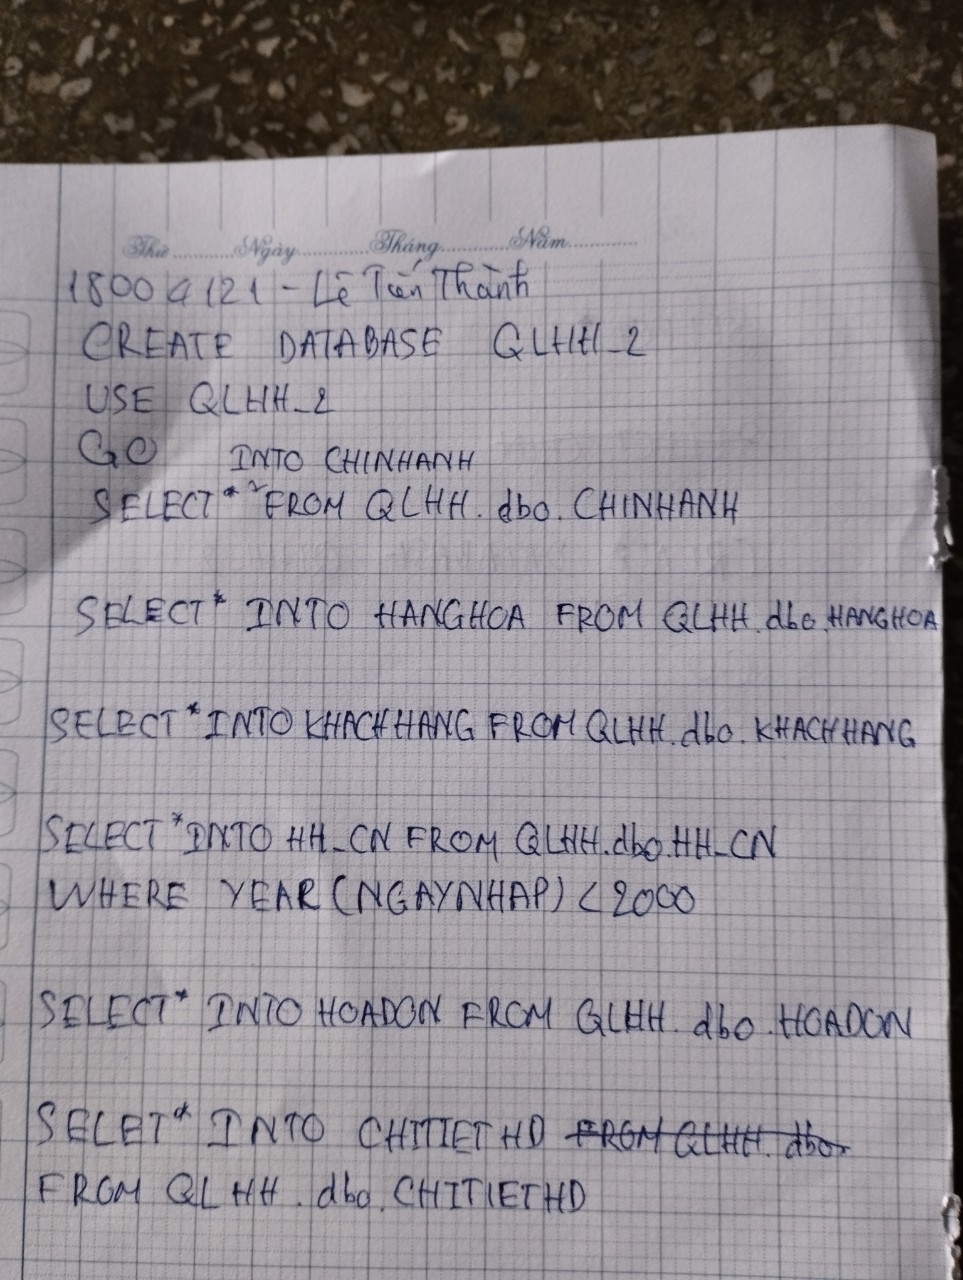 Thứ ............ Ngày ............ Tháng ............ Năm ............
18004121 - Lê Tiến Thành
CREATE DATABASE QLHH_2
USE QLHH_2
GO
INTO CHINHANH
SELECT * FROM QLHH.dbo.CHINHANH
SELECT * INTO HANGHOA FROM QLHH.dbo.HANGHOA
SELECT * INTO KHACHHANG FROM QLHH.dbo.KHACHHANG
SELECT * INTO HH_CN FROM QLHH.dbo.HH_CN
WHERE YEAR(NGAYNHAP) < 2000
SELECT * INTO HOADON FROM QLHH.dbo.HOADON
SELET * INTO CHITIETHD FROM QLHH.dbo.
FROM QLHH.dbo.CHITIETHD